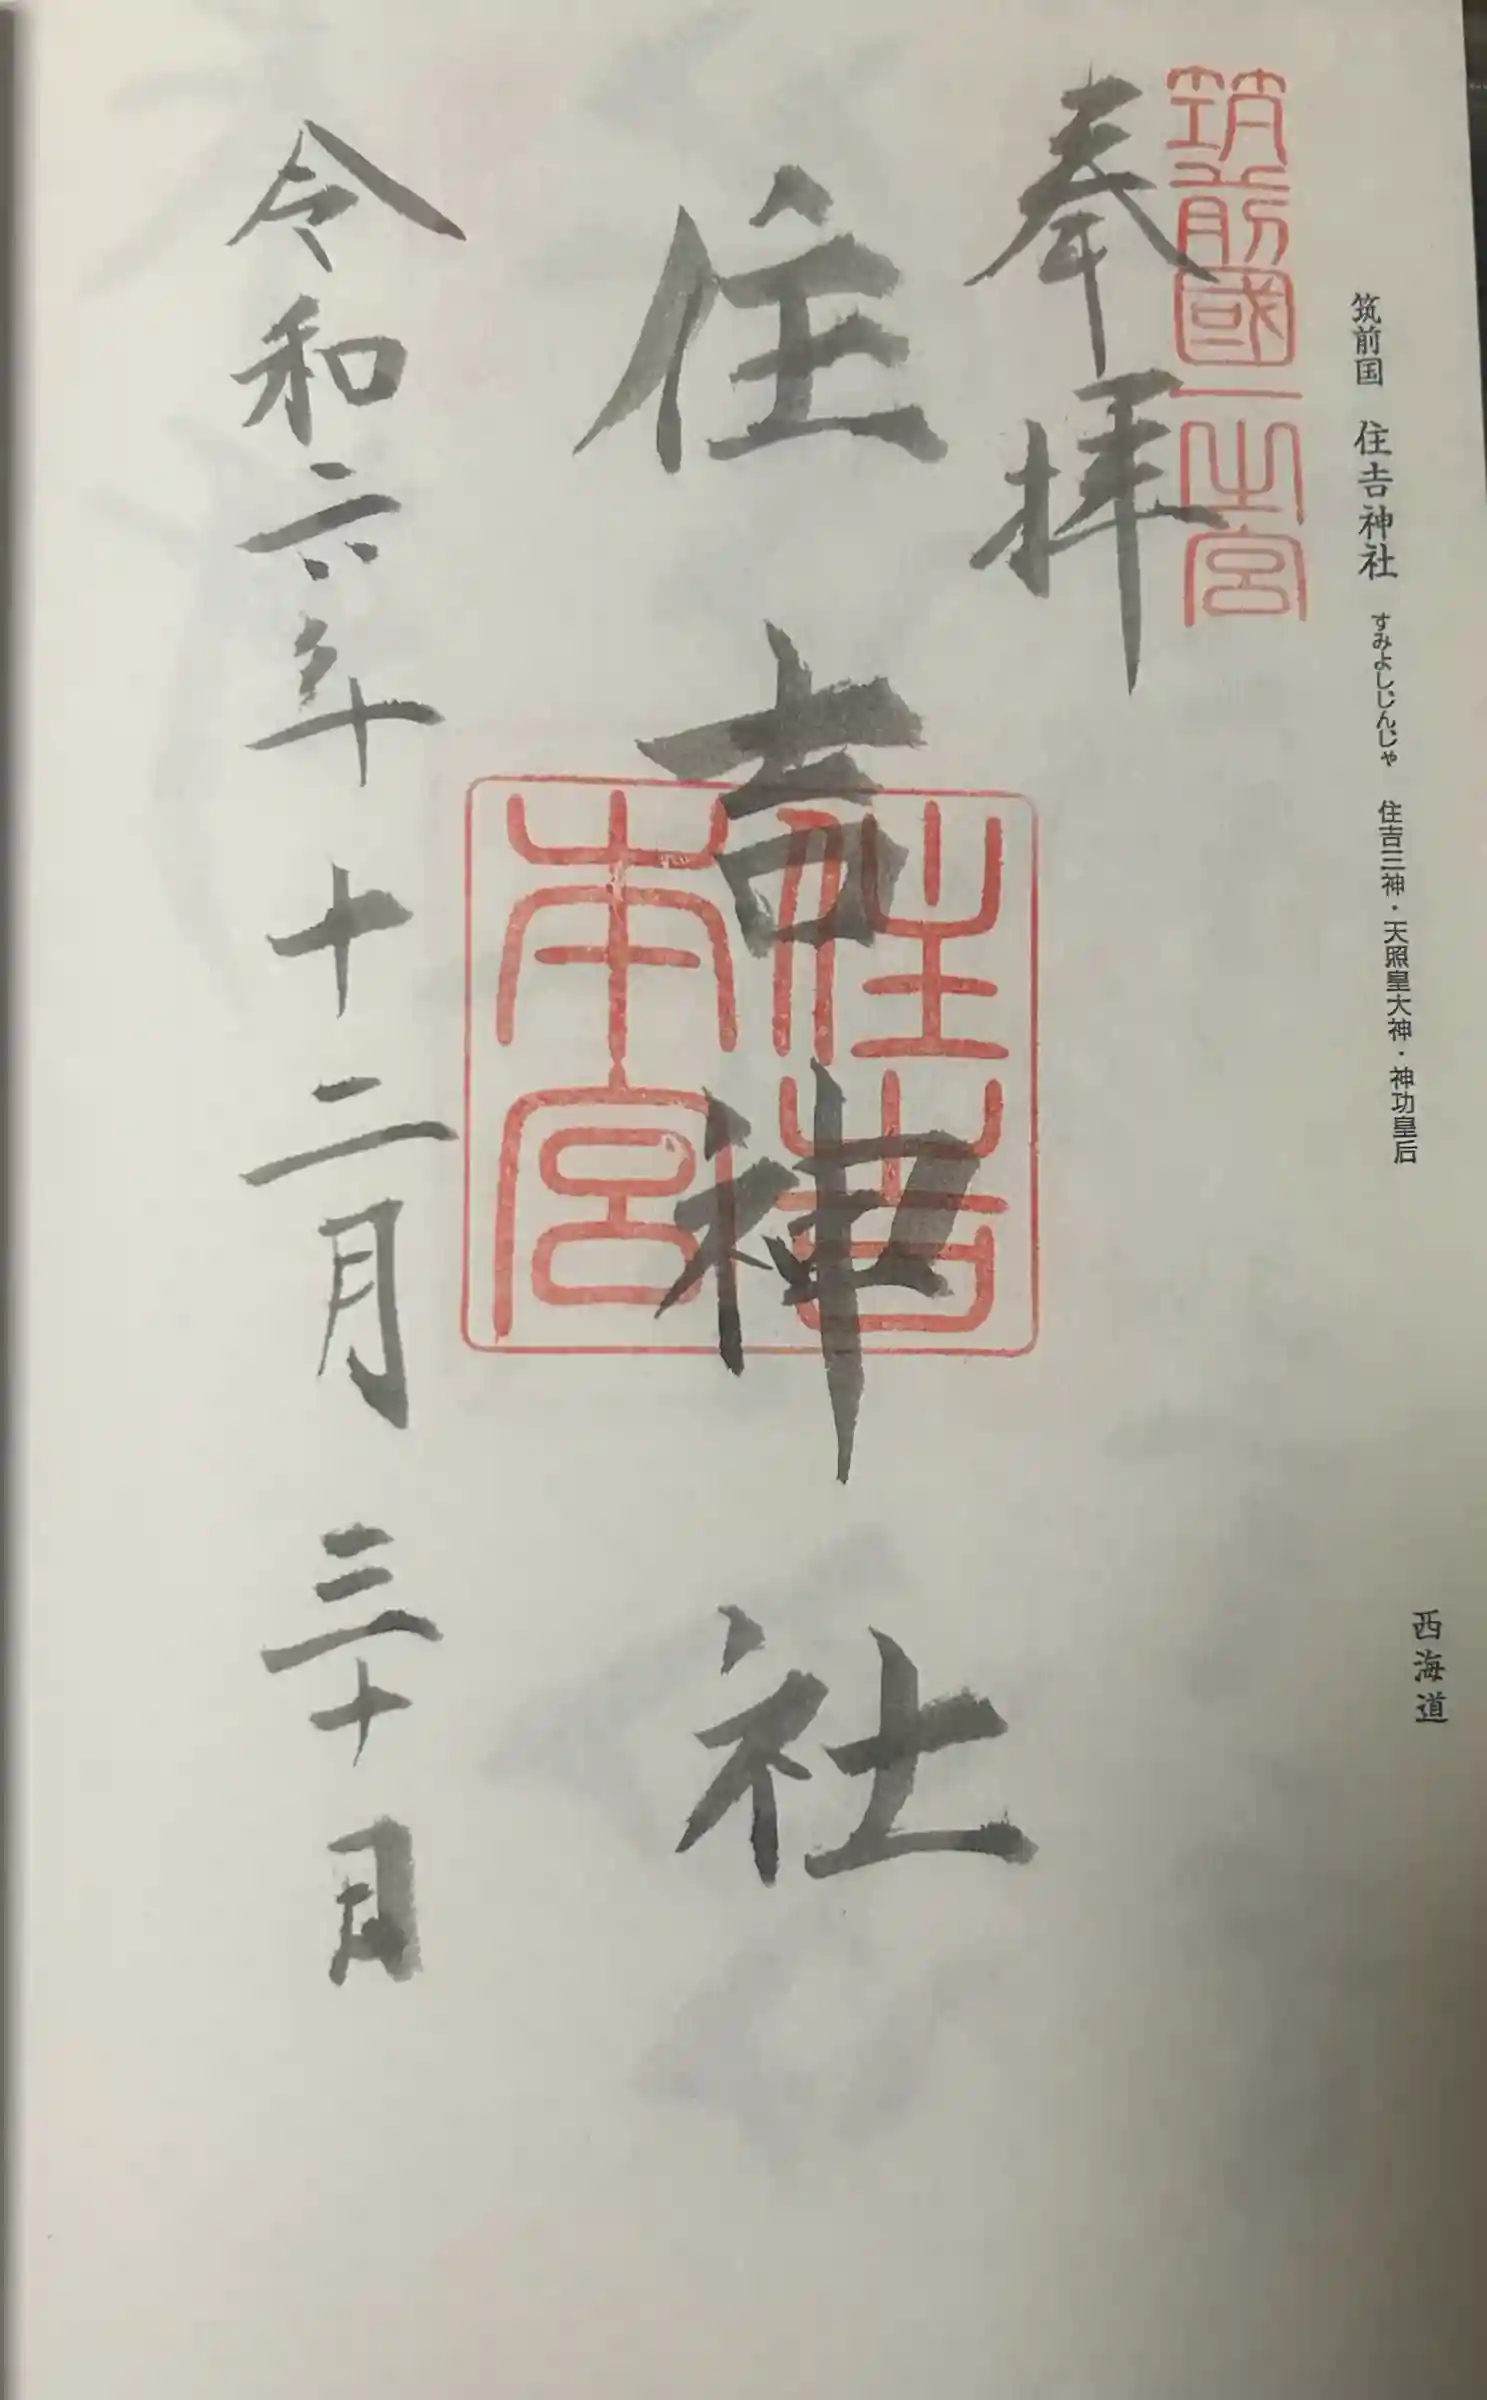 筑前国 住吉神社 すみよしじんじゃ 住吉三神・天照皇大神・神功皇后
西海道
筑前國一之宮
奉拝
住吉神社
住吉
本宮
令和六年十二月三十日